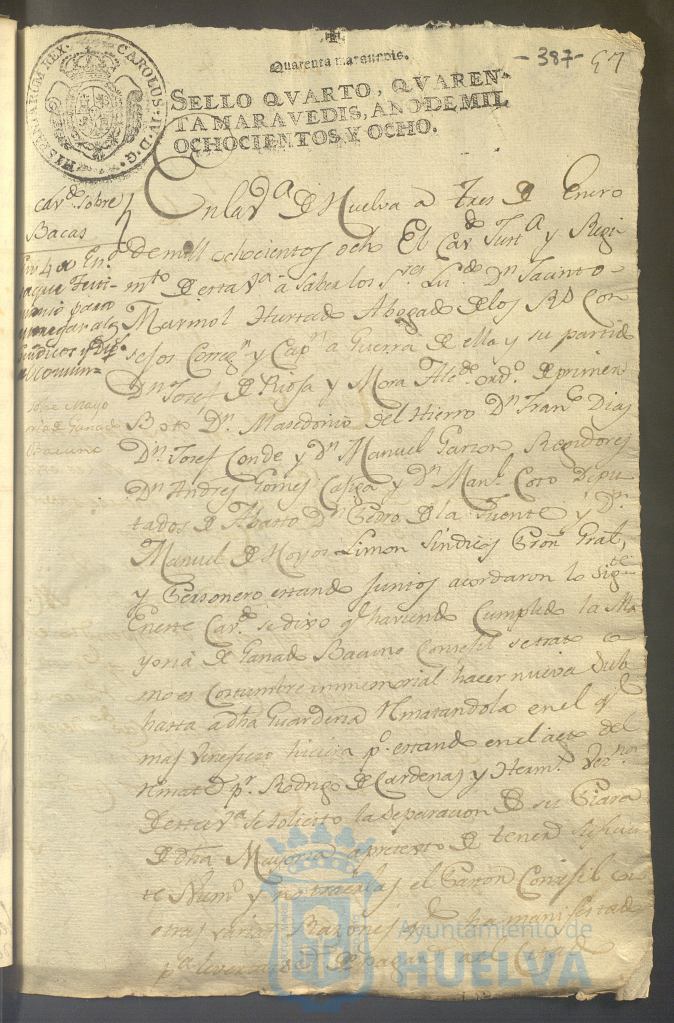 Quarenta maravedis.
- 387 - 97
HISPANIARUM REX. CAROLUS IV D. G.
SELLO QVARTO, QVAREN-
TA MARAVEDIS, AÑO DE MIL
OCHOCIENTOS Y OCHO.
Cavdo. sobre
Bacas
En la Va. de Huelva a tres de Enero
de mill ochocientos ocho El Cavdo. Justa. y Regi
mto. de esta Va. a saber los Sres. Lizdo. Dn. Jacinto
Marmol Hurtado Abogado de los Rs. Con
sejos Corregr. y Capn. a Guerra de ella y su partido
Dn. Josef de Riosa y Mora Alcde. ordo. de primer
Boto Dn. Masedonio del Hierro Dn. Franco. Dias
Dn. Josef Conde y Dn. Manuel Garzon Regidores
Dn. Andres Gomes y Dn. Manl. Coto Dipu
tados de Abasto Dn. Pedro de la Fuente y Dn.
Manuel de Hoyos Limon Sindicos Pron. Gral,
y Personero estando juntos acordaron lo Sigte.
En este Cavdo. se dixo qe. haviendo Cumplido la Ma
yoria de Ganado Bacuno Consejil se trate co
mo es Costumbre inmemorial hacer nueva Sub
hasta a dha Guarderia Rmatandola en el qe.
mas veneficio hiciera po. estando en el acto del
Rmate pr. Rodrigo de Cardenas y Herms. Vecnos.
de esta Va. se solicito la Separacion de su Piara
de dha Mayoria apretexto de tener suficien
te Numo. y no traerlas el Paron Consejil co
otras varias Razones qe. ha manifestado
pa.
Ayuntamiento de
HUELVA